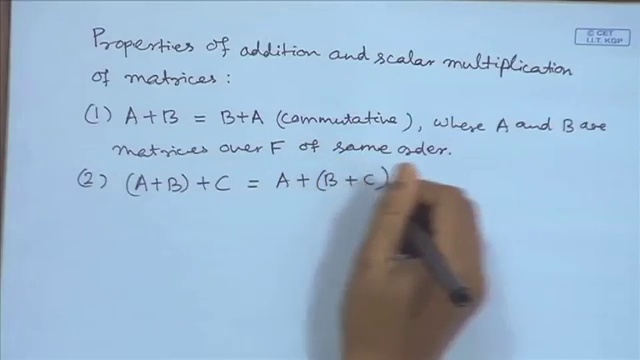 © CET
I.I.T. KGP
Properties of addition and scalar multiplication
of matrices :
(1) A+B = B+A (commutative), where A and B are
matrices over F of same order.
(2) (A+B) + C = A + (B + C)